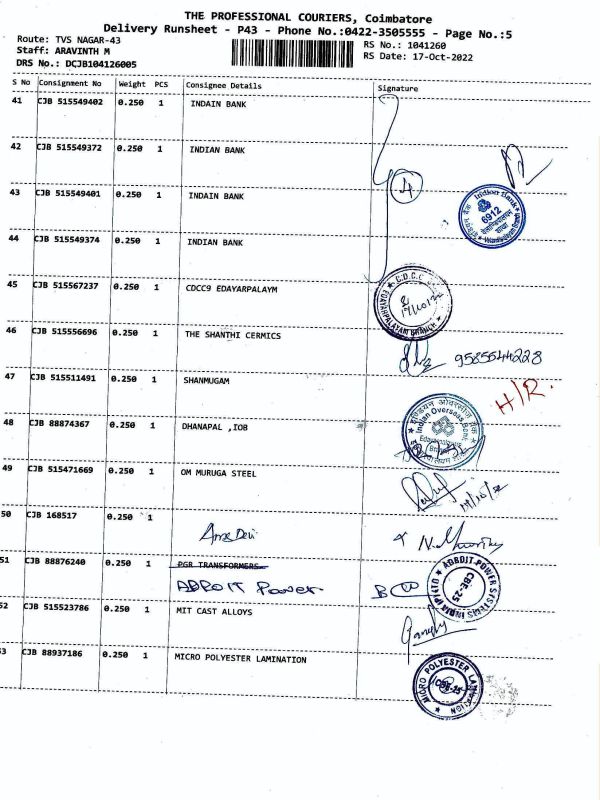 THE PROFESSIONAL COURIERS, Coimbatore
Delivery Runsheet - P43 - Phone No.:0422-3505555 - Page No.:5
Route: TVS NAGAR-43
RS No.: 1041260
Staff: ARAVINTH M
RS Date: 17-Oct-2022
DRS No.: DCJB104126005
S No Consignment No Weight PCS Consignee Details Signature
41 CJB 515549402 0.250 1 INDAIN BANK
42 CJB 515549372 0.250 1 INDIAN BANK
4
43 CJB 515549401 0.250 1 INDAIN BANK
Indian Bank
6912
44 CJB 515549374 0.250 1 INDIAN BANK
45 CJB 515567237 0.250 1 CDCC9 EDAYARPALAYM
C.D.C.C.
EDAYARPALAYAM BRANCH
46 CJB 515556696 0.250 1 THE SHANTHI CERMICS
9585544228
47 CJB 515511491 0.250 1 SHANMUGAM
H/R.
48 CJB 88874367 0.250 1 DHANAPAL ,IOB
Indian Overseas Bank
49 CJB 515471669 0.250 1 OM MURUGA STEEL
50 CJB 168517 0.250 1
51 CJB 88876240 0.250 1 PGR TRANSFORMERS
ADROIT Power
ADROIT POWER SYSTEMS INDIA (P) LTD
CBE-25
52 CJB 515523786 0.250 1 MIT CAST ALLOYS
53 CJB 88937186 0.250 1 MICRO POLYESTER LAMINATION
MICRO POLYESTER LAMINATION
CBE-25